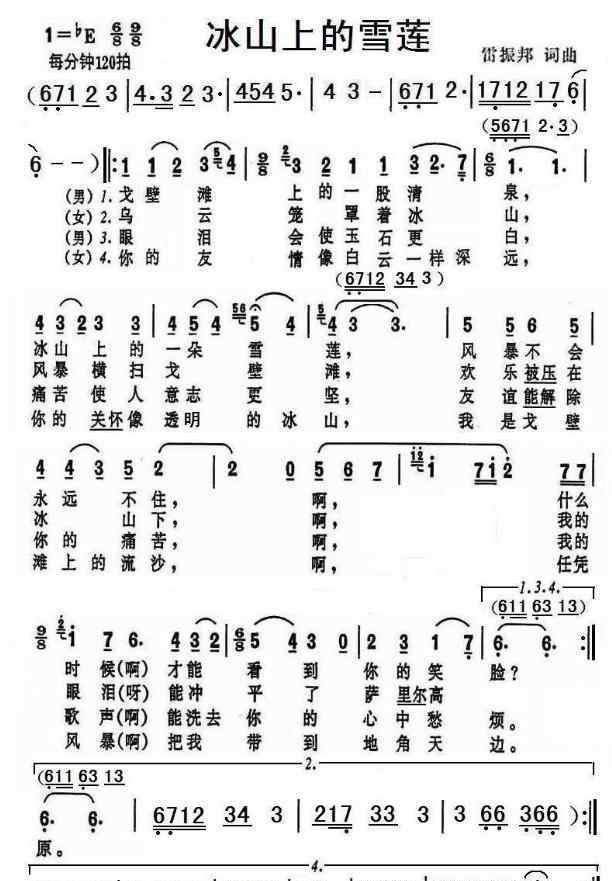 冰山上的雪莲
1=♭E 6/8 9/8
每分钟120拍
雷振邦 词曲
(671 2 3 | 4·3 2 3· | 454 5· | 4 3 – | 671 2· | 1712 17 6 |
(5671 2·3)
6 – –) ‖: 1 1 2 3 5 4 | 9/8 2 3 2 1 1 3 2· 7 | 6/8 1· 1· |
(男) 1. 戈壁 滩 上的一股清 泉,
(女) 2. 乌 云 笼 罩着冰 山,
(男) 3. 眼 泪 会使玉石更 白,
(女) 4. 你的 友 情像白云一样深 远,
(6712 34 3)
4 3 2 3 3 | 4 5 4 56 5 4 | 5 4 3 3· | 5 5 6 5 |
冰山 上 的 一朵 雪 莲, 风暴不会
风暴 横 扫 戈 壁 滩, 欢乐被压在
痛苦 使 人 意志 更 坚, 友谊能解除
你的 关怀像 透明 的 冰山, 我是戈壁
4 4 3 5 2 | 2 0 5 6 7 | 12 1 71 2 | 77
永远 不住, 啊, 什么
冰 山下, 啊, 我的
你的 痛苦, 啊, 我的
滩上的流沙, 啊, 任凭
1.3.4.
(611 63 13)
9/8 2 1 7 6· 4 3 2 | 6/8 5 4 3 0 | 2 3 1 7 | 6· 6· :‖
时候(啊) 才能 看 到 你的笑 脸?
眼泪(呀) 能冲 平 了 萨里尔高
歌声(啊) 能洗去 你 的 心中愁 烦。
风暴(啊) 把我 带 到 地角天 边。
2.
(611 63 13
6· 6· | 6712 34 3 | 217 33 3 | 3 66 366 ):‖
原。
4.